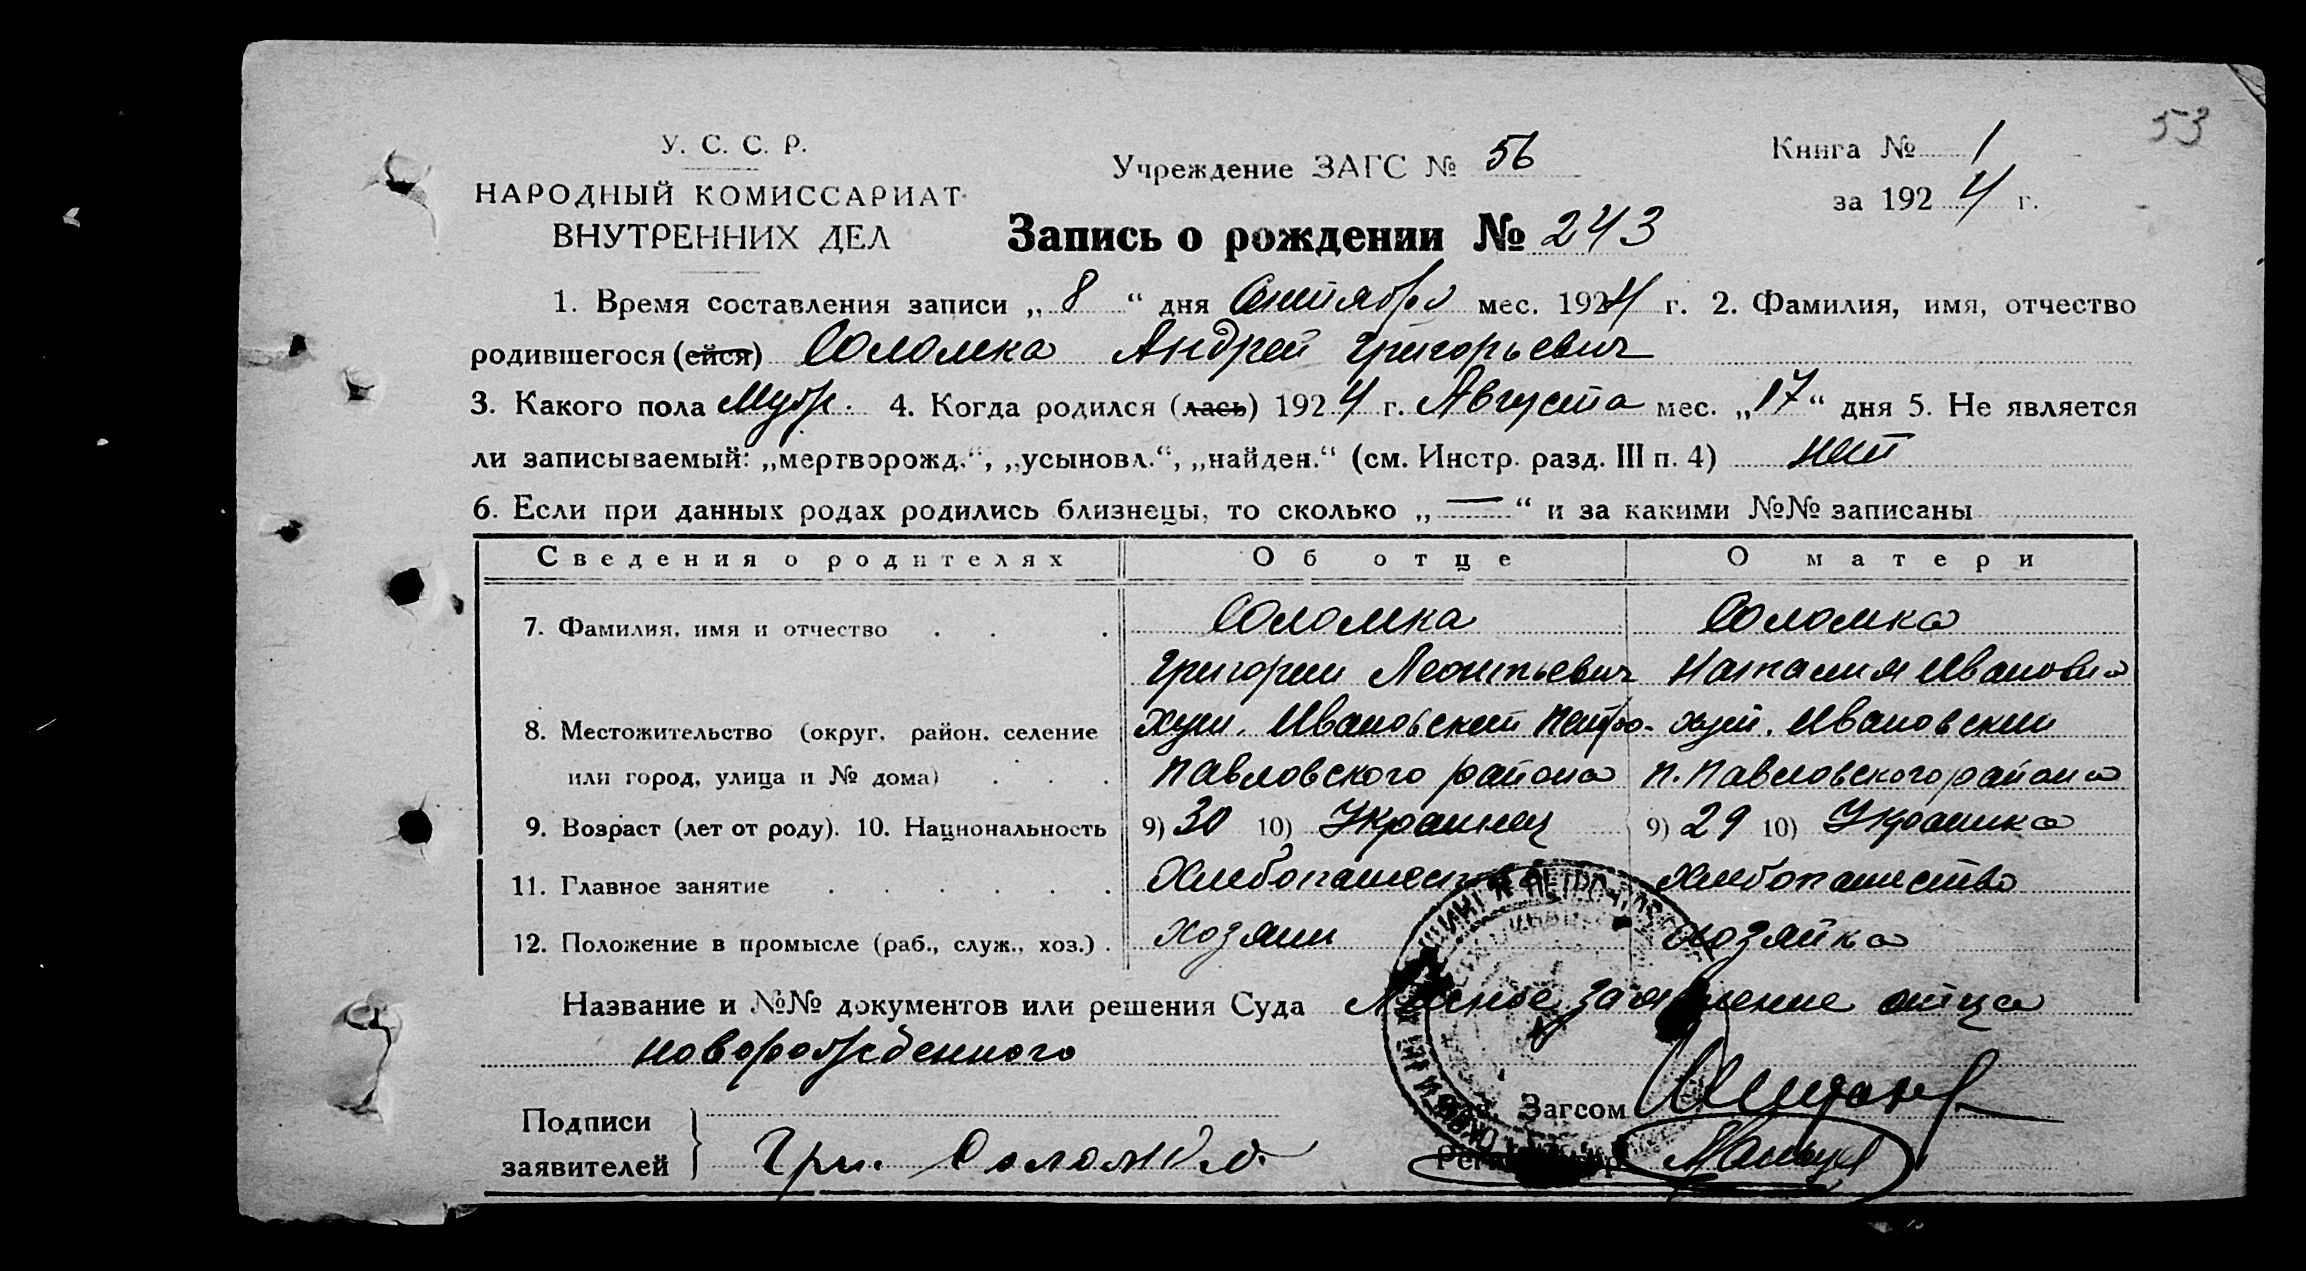 53
У. С. С. Р.
НАРОДНЫЙ КОМИССАРИАТ
ВНУТРЕННИХ ДЕЛ
Учреждение ЗАГС № 56
Книга № 1
за 1924 г.
Запись о рождении № 243
1. Время составления записи „ 8 “ дня Сентября мес. 1924 г. 2. Фамилия, имя, отчество
родившегося (ейся) Соломка Андрей Григорьевич
3. Какого пола Муж. 4. Когда родился (лась) 1924 г. Августа мес. „17“ дня 5. Не является
ли записываемый: „мертворожд.“, „усыновл.“, „найден.“ (см. Инстр. разд. III п. 4) нет
6. Если при данных родах родились близнецы, то сколько „ — “ и за какими №№ записаны
Сведения о родителях Об отце О матери
7. Фамилия, имя и отчество . . . Соломка Соломка
Григорий Леонтьевич Наталия Ивановна
8. Местожительство (округ, район, селение хут. Ивановский Петро- хут. Ивановский
или город, улица и № дома) . . . Павловского района П. Павловского района
9. Возраст (лет от роду). 10. Национальность 9) 30 10) Украинец 9) 29 10) Украинка
11. Главное занятие . . . . . . Хлебопашество Хлебопашество
12. Положение в промысле (раб., служ., хоз.) . хозяин хозяйка
Название и №№ документов или решения Суда Личное заявление отца
новорожденного
Подписи
заявителей
Гри. Соломка
Зав. Загсом
Регистратор